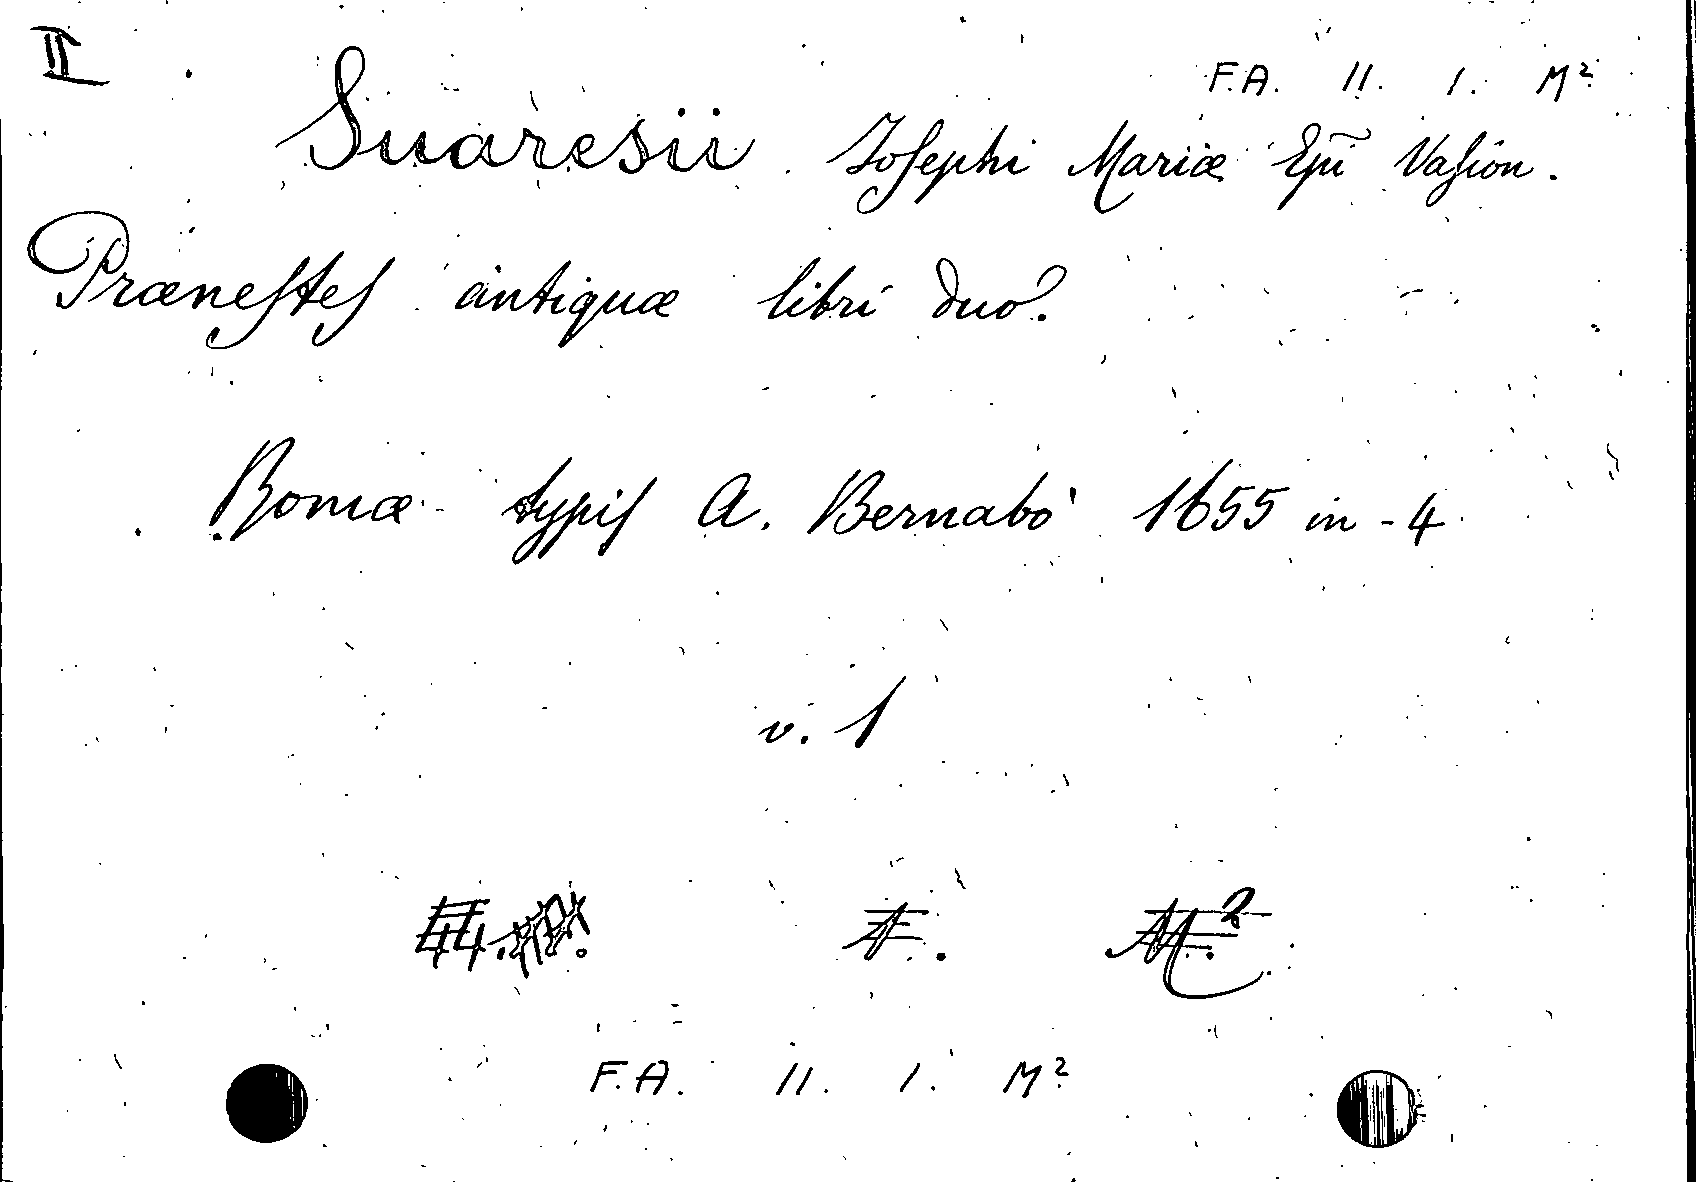 II
F.A. II. I. M²
Suaresii Josephi Mariæ Epĩ Vasion.
Prænestes antiquæ libri duo.
Romæ typis A. Bernabò 1655 in-4
v. 1
I. M.²
F.A. II. I. M²